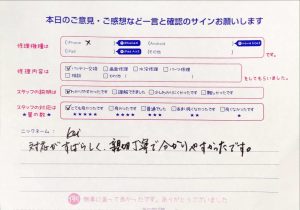 本日のご意見・ご感想など一言と確認のサインお願いします
修理機種は
iPhone X
Android
iPad
その他
です。
修理内容は
バッテリー交換 画面修理 水没修理 パーツ修理
その他
をしてもらいました。
スタッフの説明は
わかりやすかったです
スタッフの対応は
★星の数★
とても良かったです 良かったです 普通でした 良くなかったです
★★★★★ ★★★★ ★★★ ★★ ★
ニックネーム:
対応がすばらしく、親切丁寧で分かりやすかったです。
無事に直って良かったです。ありがとうございました